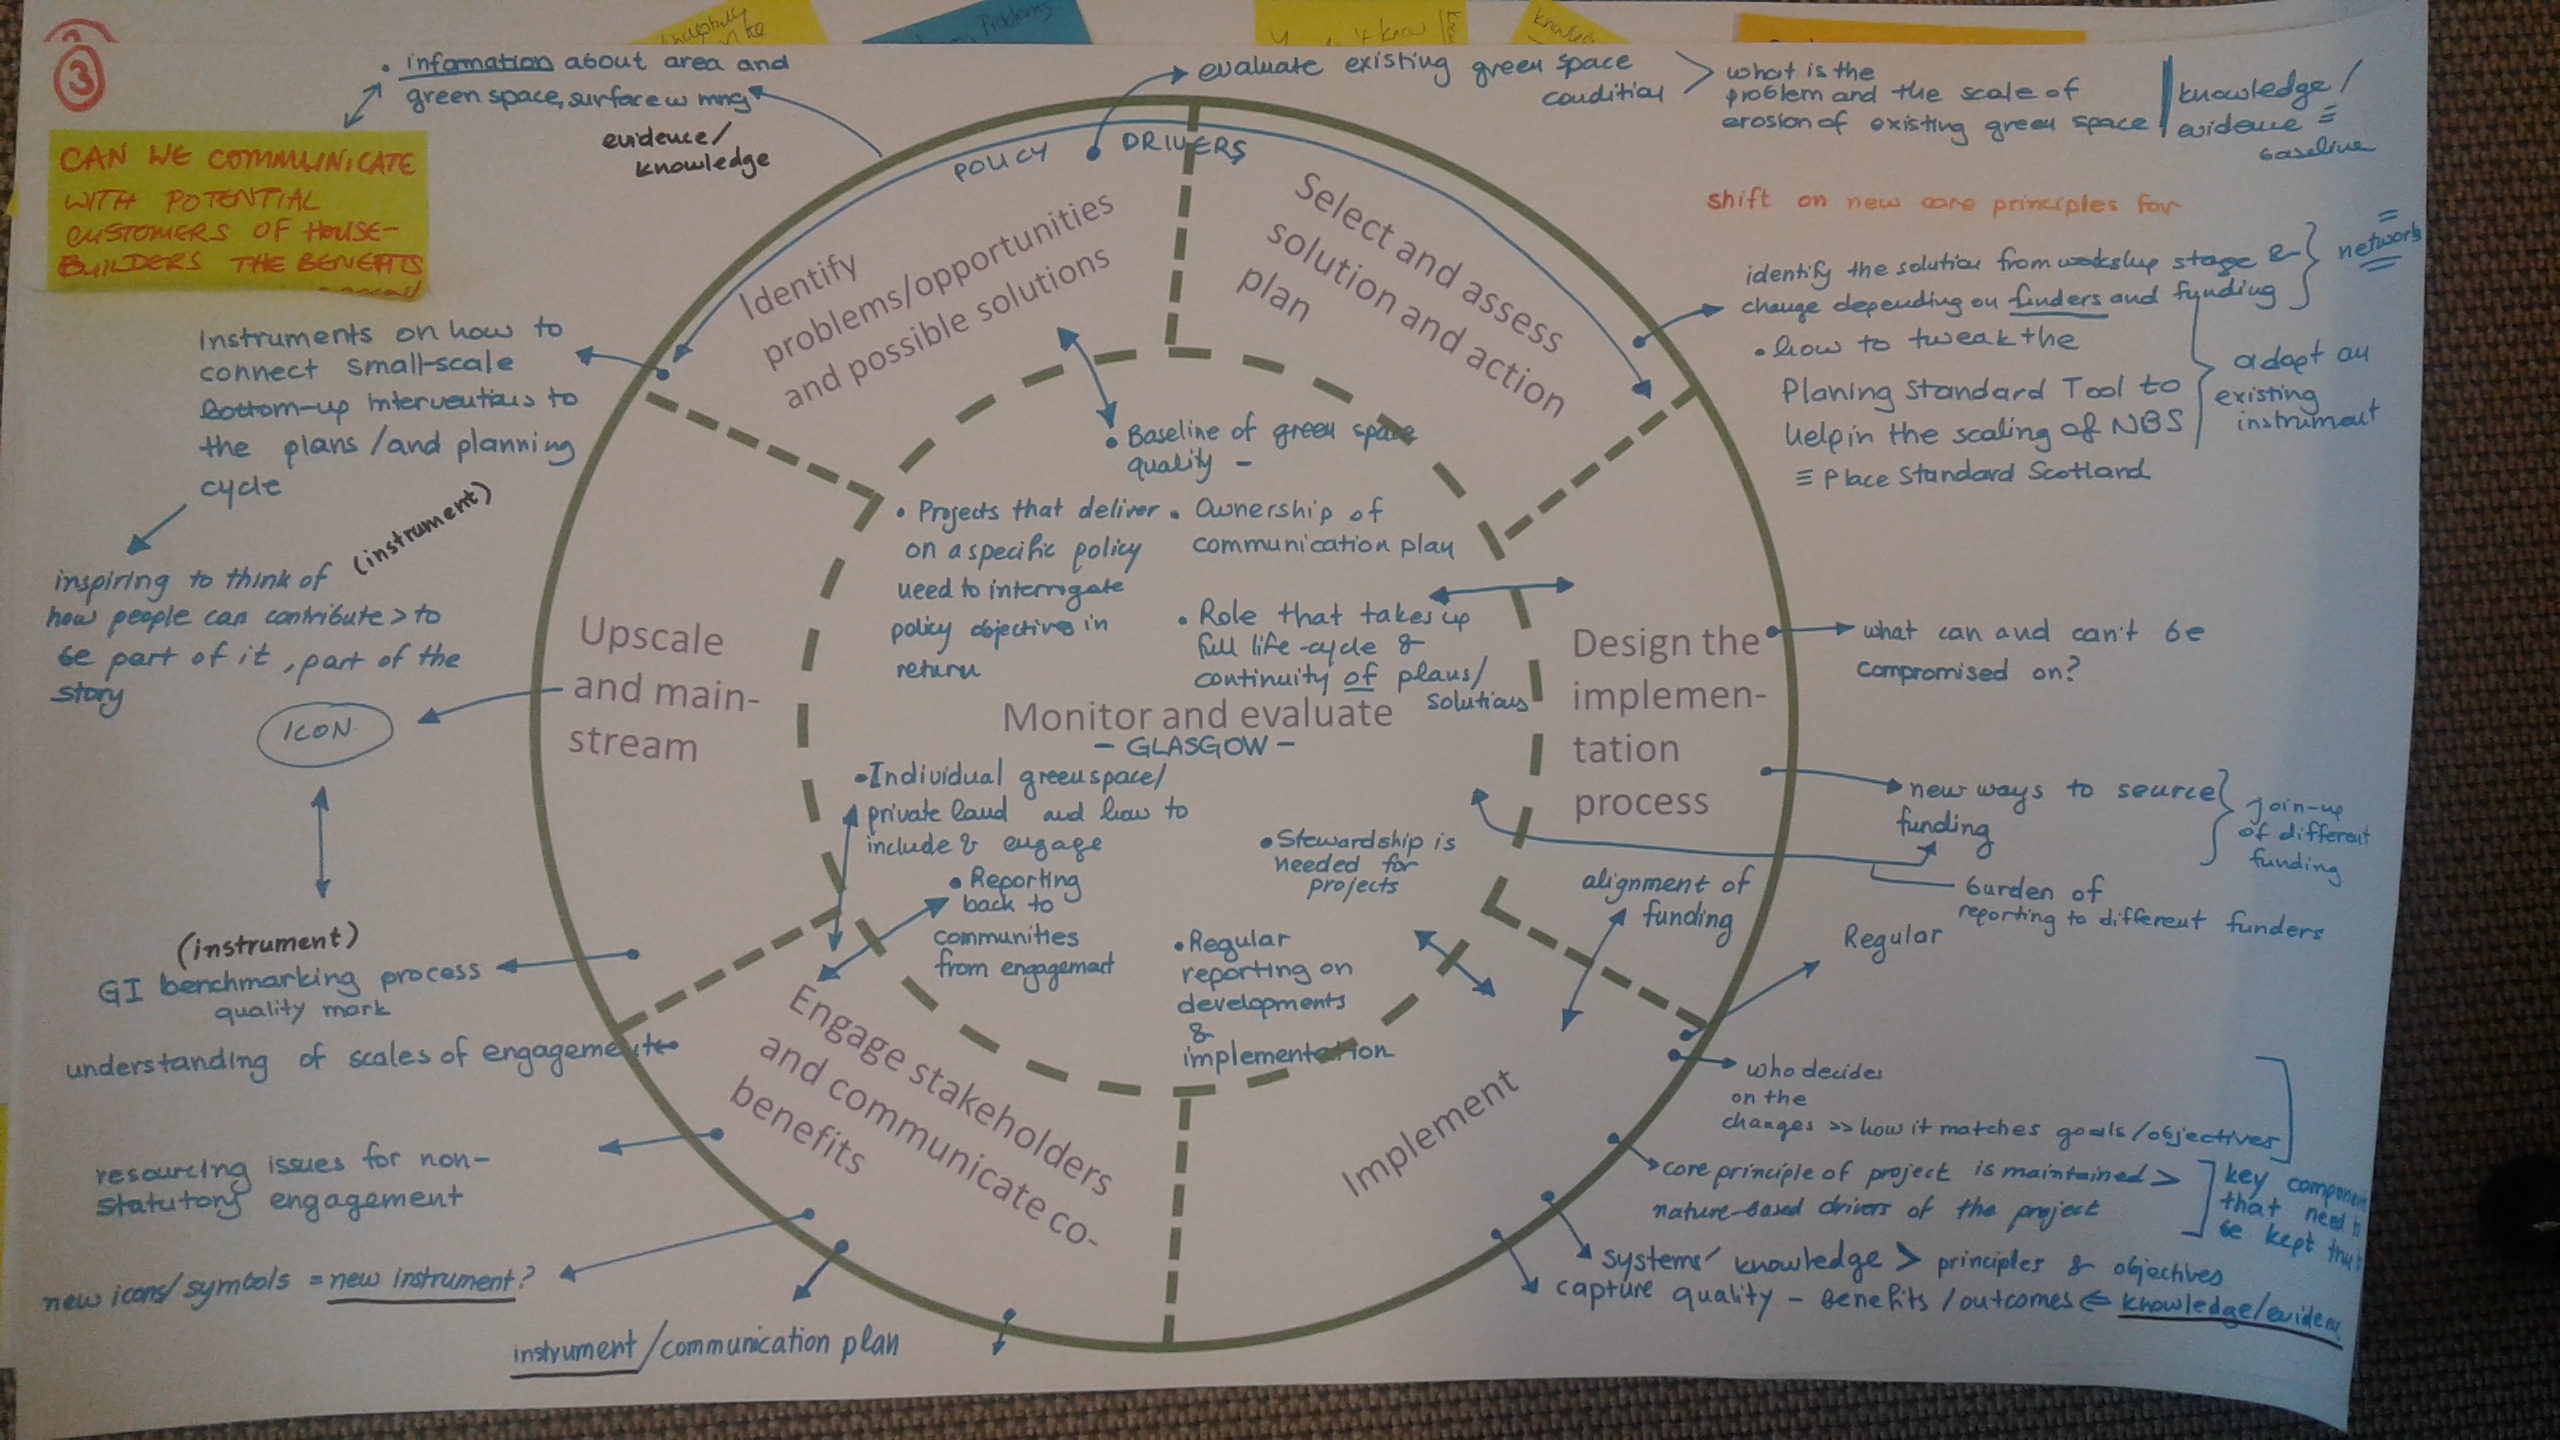 3
Problems
• information about area and
green space, surface w mng
evidence/
knowledge
CAN WE COMMUNICATE
WITH POTENTIAL
CUSTOMERS OF HOUSE-
BUILDERS THE BENEFITS
evaluate existing green space
condition
what is the
problem and the scale of
erosion of existing green space
knowledge/
evidence =
baseline
POLICY DRIVERS
Identify
problems/opportunities
and possible solutions
Select and assess
solution and action
plan
shift on new core principles for
identify the solution from workshop stage &
change depending on funders and funding
network
• how to tweak the
Planing Standard Tool to
help in the scaling of NBS
≡ Place Standard Scotland
adapt an
existing
instrument
Instruments on how to
connect small-scale
bottom-up interventions to
the plans /and planning
cycle
(instrument)
inspiring to think of
how people can contribute > to
be part of it, part of the
story
ICON
• Baseline of green space
quality -
• Projects that deliver
on a specific policy
need to interrogate
policy objective in
return
• Ownership of
communication plan
• Role that takes up
full life-cycle &
continuity of plans/
solutions
Upscale
and main-
stream
Monitor and evaluate
- GLASGOW -
Design the
implemen-
tation
process
what can and can't be
compromised on?
new ways to source
funding
join-up
of different
funding
burden of
reporting to different funders
• Individual greenspace/
private land and how to
include & engage
• Reporting
back to
communities
from engagement
• Stewardship is
needed for
projects
• Regular
reporting on
developments
&
implementation
alignment of
funding
Regular
(instrument)
GI benchmarking process
quality mark
understanding of scales of engagement
resourcing issues for non-
statutory engagement
new icons/symbols = new instrument?
instrument/communication plan
Engage stakeholders
and communicate co-
benefits
Implement
who decides
on the
changes >> how it matches goals/objectives
core principle of project is maintained >
nature-based drivers of the project
key component
that need to
be kept
systems' knowledge > principles & objectives
capture quality - benefits/outcomes ⇐ knowledge/eviden